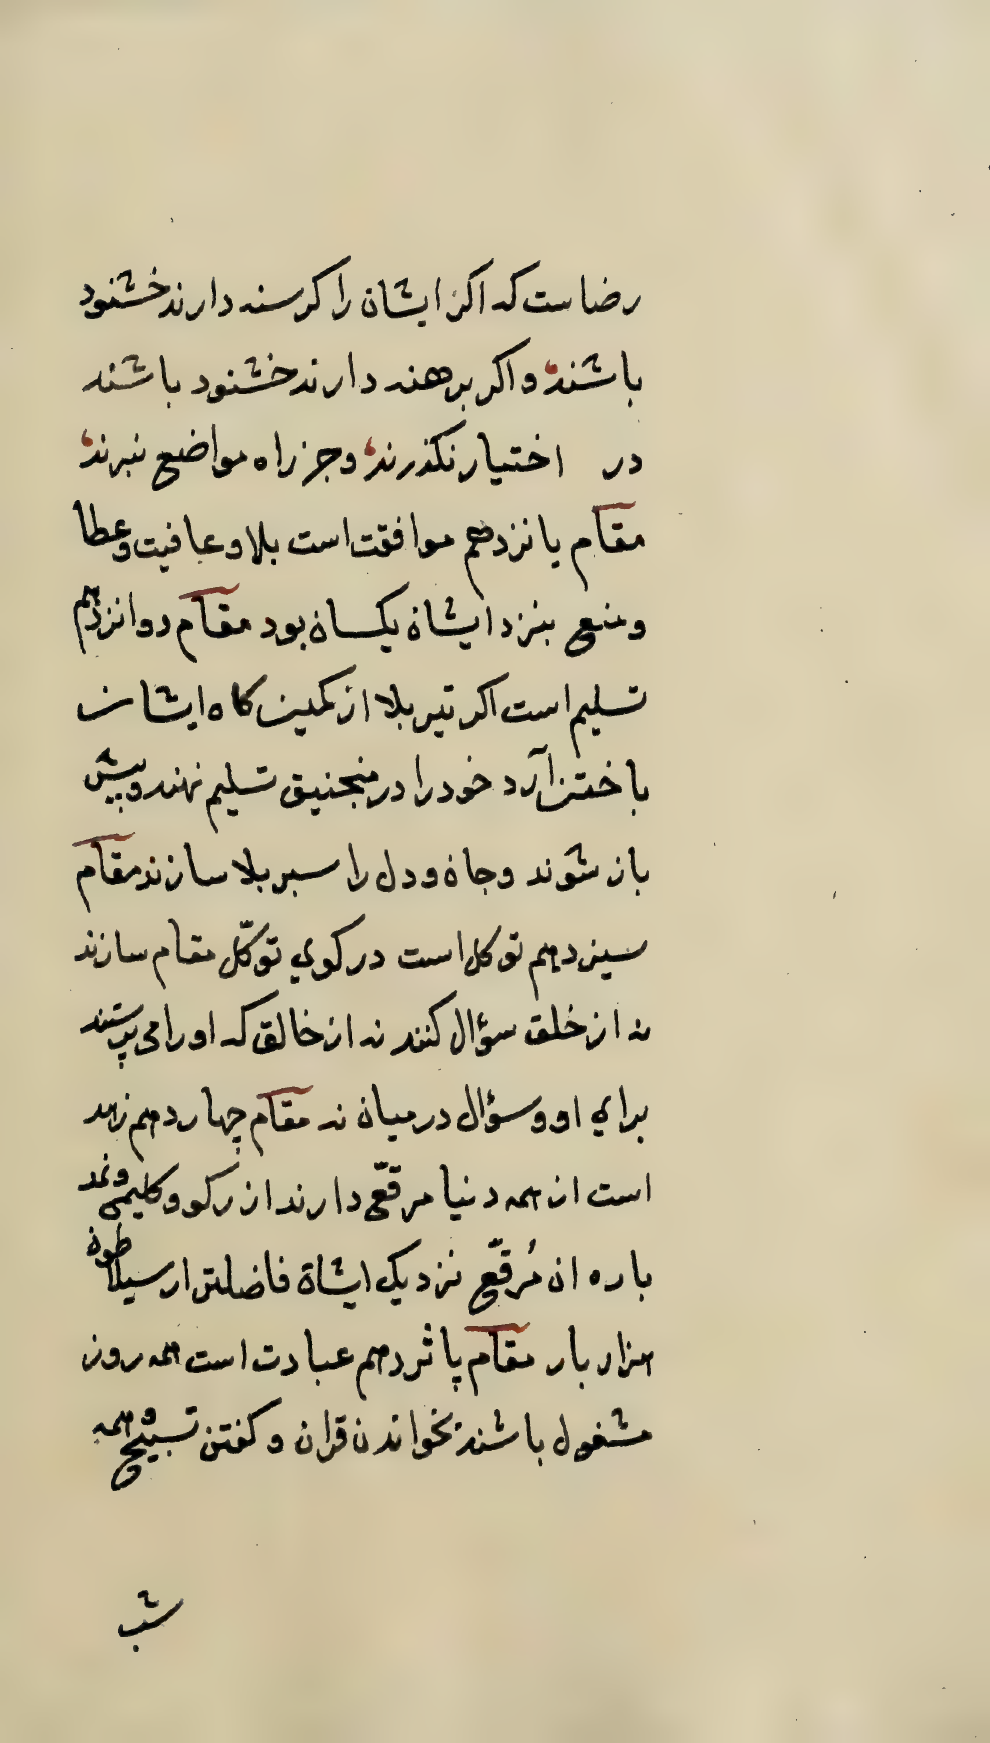 رضاست که اکر ایشان را کرسنه دارند خشنود
باشند واکر برهنه دارند خشنود باشند
در اختیار نکذرند وجز راه مواضع نبرند
مقام یانزدهم موافقت است بلا وعافیت وعطا
ومنع بنزد ایشان یکسان بود مقام دوانزدهم
تسلیم است اکر تیر بلا از کمین کاه ایشان
باختن آرد خود را در منجنیق تسلیم نهند وپیش
باز شوند وجان ودل را سبر بلا سازند مقام
سیزدهم توکل است در کوی توکّل مقام سازند
نه از خلق سؤال کنند نه از خالق که او را می پرستند
برای او وسؤال در میان نه مقام چهاردهم زهد
است از همه دنیا مرقّعی دارند از رکو وکلیمی ونمد
باره ان مُرقّع نزدیک ایشان فاضلتر از سیلاطون
هزار بار مقام پانزدهم عبادت است همه روز
مشغول باشند بخواندن قران وکفتن تسبیح وهمه
شب